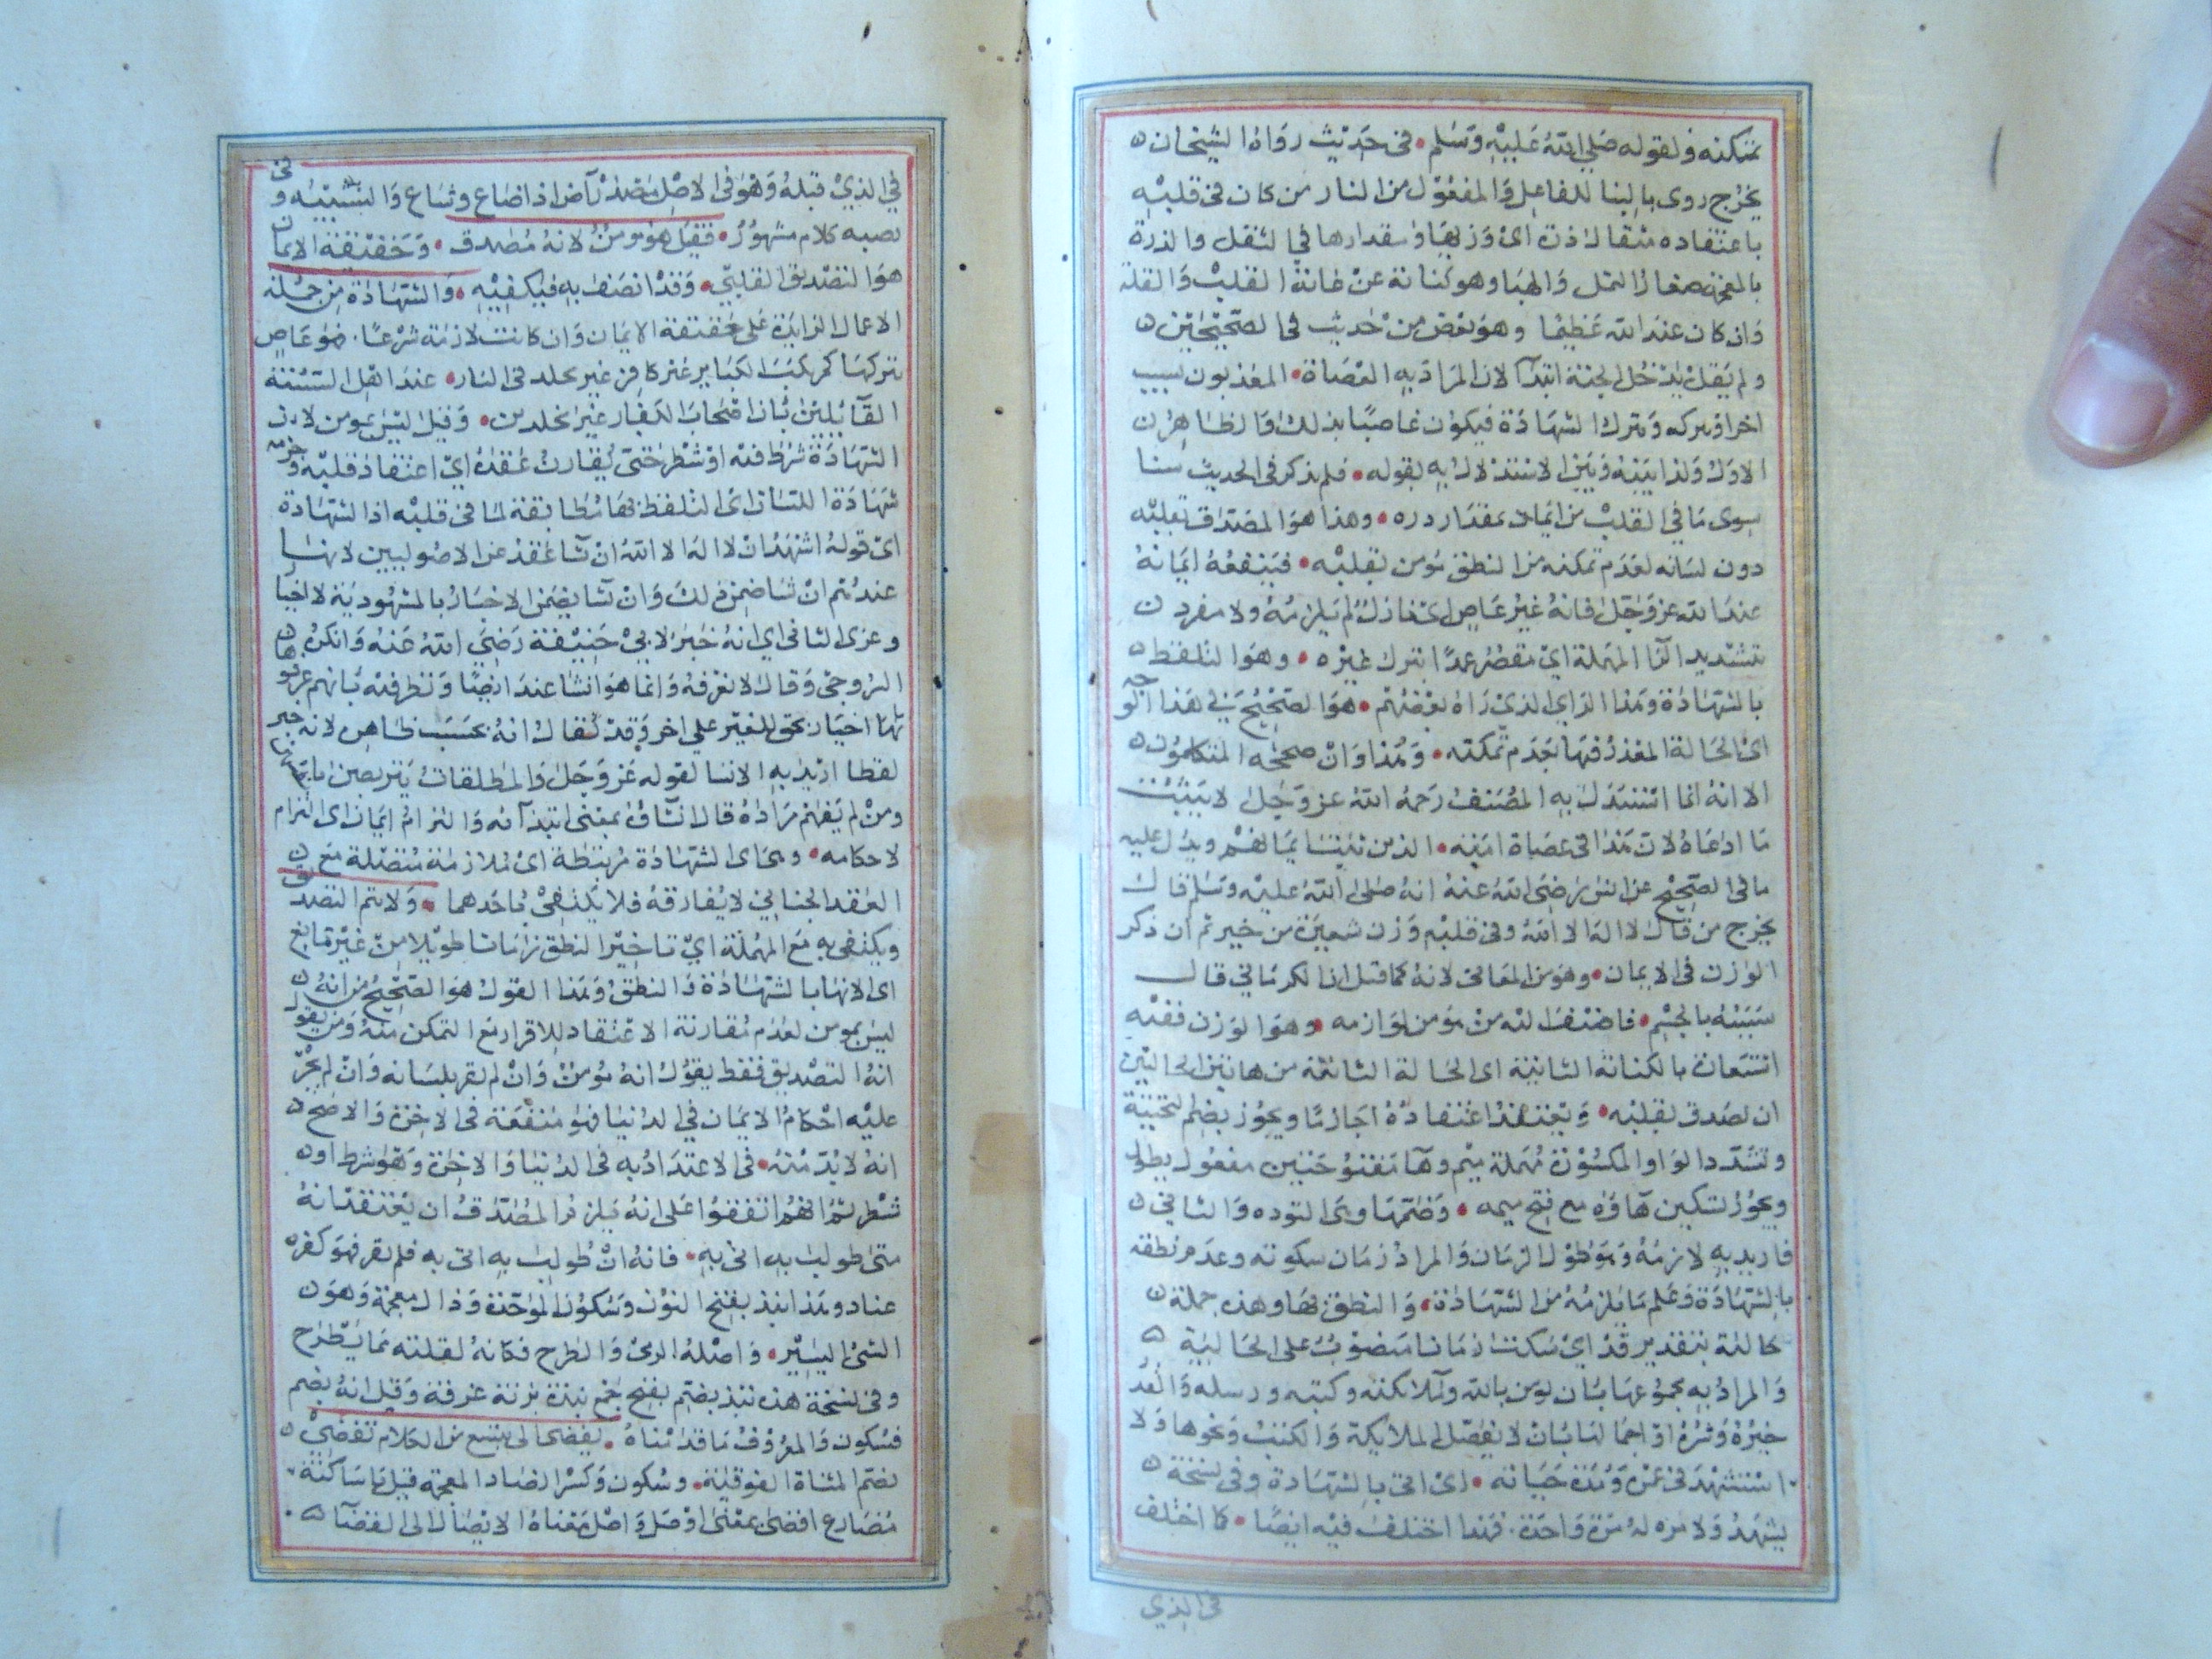 تمكنه ولقوله صلي الله عليه وسلم • في حديث رواه الشيخان
يخرج روى بالبنا للفاعل والمفعول من النار من كان في قلبه
باعتقاده مثقال ذرة اي وزنها ومقدارها في الثقل والذرة
بالمعجمة صغار النمل والهبا وهو كناية عن غاية القلة
وان كان عند الله عظيما وهو بعض من حديث في الصحيحين
ولم يقل يدخل الجنة ابتدآ لان المراد به العصاة • المعذبون بسبب
وترك الشهادة فيكون عاصيا بذلك
الاول ولذا بينه وبين الاستدلال به بقوله • فلم يذكر في الحديث
سوى ما في القلب من ايمان بمقدار دره • وهذا هو المصدق بقلبه
دون لسانه لعدم تمكنه من النطق مومن بقلبه • فينفعه ايمانه
عند الله عز وجل فانه غير عاص
بتشديد الرا المهملة اي مقصر عمدا بترك غيره • وهو التلفظ
بالشهادة وهذا الراي الذي راه بعضهم • هو الصحيح في هذا الوجه
اي الحالة المعذر فيها بعدم تمكنه • وهذا وان صححه المتكلمون
الا انه انما استدل به المصنف رحمه الله عز وجل لا يثبت
ما ادعاه لان هذا في عصاة امته • ويدل عليه
ما في الصحيح عن انس رضي الله عنه انه صلى الله عليه وسلم قال
يخرج من قال لا اله الا الله وفي قلبه وزن شعيرة من خير ثم ان ذكر
الوزن في الايمان • وهو من المعاني لانه كما قيل الكرماني قال
شبهه بالجسم • فاضيف له من لوازمه • وهو الوزن ففيه
استعارة بالكناية الثانية اي الحالة الثانية من هاتين الحالتين
ان يصدق بقلبه • ويعتقد اعتقادا جازما ويجوز بضم التحتية
وتشديد الواو المكسورة مهملة ميم وها مفتوحتين مفعول يطول
ويجوز تسكين هاؤه مع فتح ميمه • وضمها وهي التوده والثاني
فاريد به لازمه وهو طول الزمان والمراد زمان سكوته وعدم نطقه
بالشهادة وعلم ما يلزمه من الشهادة • والنطق بها وهذه جملة
حالية بتقدير قد اي سكت زمانا منصوب على الحالية
والمراد به مجموعها بان يومن بالله وملائكته وكتبه ورسله والقدر
خيره وشره او اجمالنا بان لا يفصل الملايكة والكتب ونحوها ولا
استشهد في عمره ومدة حياته • اي اتي بالشهادة وفي نسخة
يشهد ولا مره له مرة واحدة • فهذا اختلف فيه ايضا • كما اختلف
في الذي
في الذي قبله وهو في الاصل مصدر آض اذا ضاع وشاع والتشبيه
نصبه كلام مشهور • فقيل هو مومن لانه مصدق • وحقيقة الايمان
هو التصديق القلبي • وقد اتصف به فيكفيه • والشهادة من جملة
الاعمال الزايدة على حقيقة الايمان وان كانت لازمة شرعا • فهو عاص
بتركها كمرتكب الكباير غير كافر غير مخلد في النار • عند اهل السنة
القآيلين بان اصحاب الكباير غير مخلدين • وقيل ليس بمومن لان
الشهادة شرط فيه او شطر حتى يقارن عقده اي اعتقاد قلبه وجزمه
شهادة اللسان اي التلفظ بها مطابقة لما في قلبه اذ الشهادة
اي قوله اشهد ان لا اله الا الله انشا عقد عند الاصوليين لانها
عندهم انشا ضمن ذلك وان تشا يضمن الاخبار بالمشهود به لا اخبار
وعزى الثاني اي انه خبر لابي حنيفة رضي الله عنه وانكره
السروجي وقال لا نعرفه وانما هو انشا عندنا ايضا ونظر فيه بانهم عرفوها
بانها اخبار بحق للغير على اخر وقد يقال انه بحسب ظاهره لانه خبر
لفظا اريد به الانشا لقوله عز وجل والمطلقات يتربصن
ومن لم يفهم مراده قال انشاؤه بمعنى ابتدآئه والتزام ايمان اي التزام
لاحكامه • وهي اي الشهادة مرتبطة اي ملازمة متصلة مع
العقد الجناني لا يفارقه فلا يكتفي باحدهما • ولا يتم التصديق
ويكتفى به مع المهلة اي تاخير النطق زمانا طويلا من غير مانع
اي الا بها بالشهادة والنطق وهذا القول هو الصحيح من انه
ليس بمومن لعدم مقارنة الاعتقاد للاقرار مع التمكن منه ومن يقول
انه التصديق فقط يقول انه مومن وان لم يقر بلسانه وان لم يجر
عليه احكام الايمان في الدنيا فهو منفعة في الاخرة والاصح
انه لا بد منه • في الاعتداد به في الدنيا والاخرة وهو شرط او
شطر ثم انهم اتفقوا على انه يلزم المصدق ان يعتقد انه
متى طولب به اتى به • فانه ان طولب به اتى به فلم يقر فهو كفره
عناد وهذا نبذ بفتح النون وسكون الموحدة وذال معجمة وهو
الشئ اليسير • واصله الرمي والطرح فكانه لقلته مما يطرح
وفي نسخة هذه نبذ بضم بفتح جمع نبذة بزنة غرفة وقيل انه بضم
فسكون والمعروف ما قدمناه • يفضي الى متسع من الكلام تفضي
بضم المثناة الفوقية • وسكون وكسر الضاد المعجمة قبل يا ساكنة
مضارع افضى بمعنى اوصل واصل معناه الايصال الى الفضآ